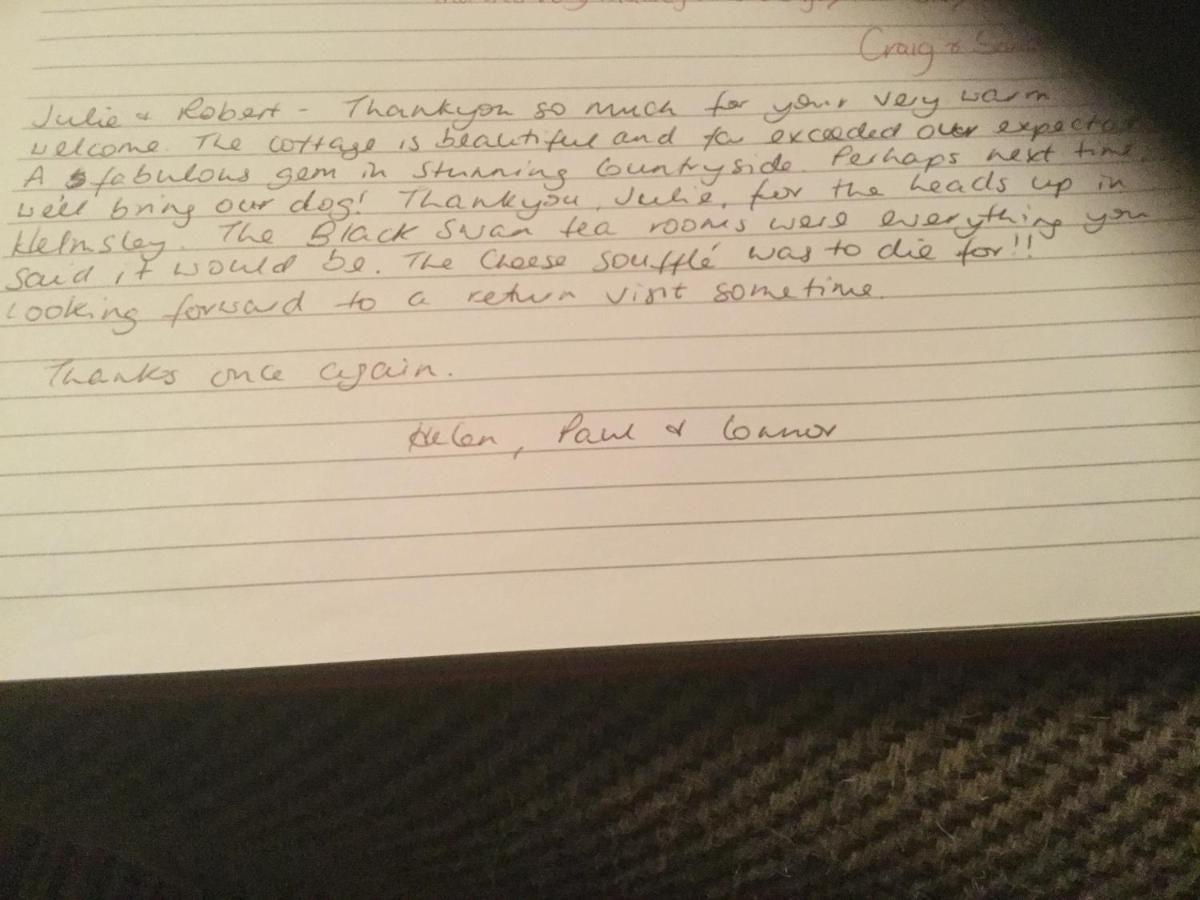 Craig &
Julie & Robert - Thankyou so much for your very warm
welcome. The cottage is beautiful and far exceeded our
A fabulous gem in stunning Countryside. Perhaps next time
we'll bring our dog! Thankyou, Julie, for the heads up in
Helmsley. The Black Swan tea rooms were everything you
said it would be. The Cheese Soufflé was to die for!!
Looking forward to a return visit sometime.
Thanks once again.
Helen, Paul & Connor